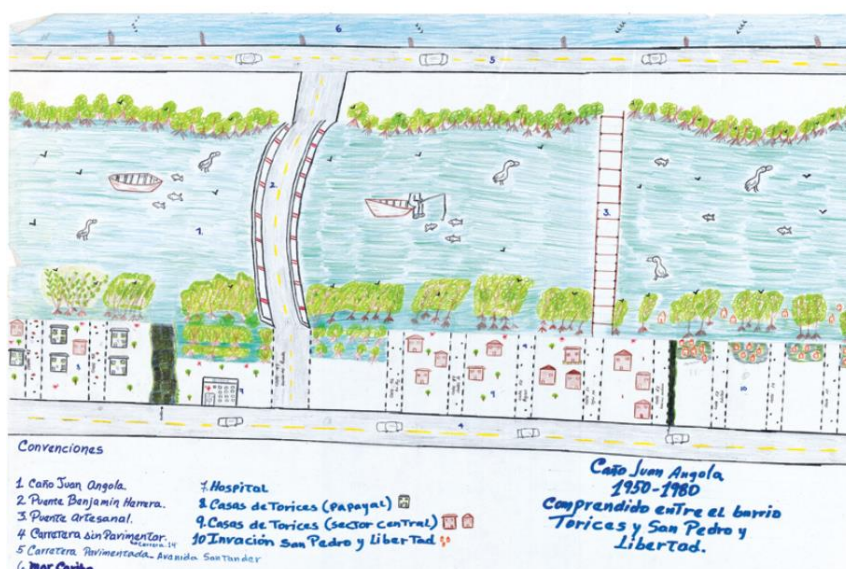 6
5
2
3
1
10
4
Convenciones
1 Caño Juan Angola.
2 Puente Benjamin Herrera.
3 Puente Artesanal.
4 Carretera sin Pavimentar. Carrera 14
5 Carretera Pavimentada Avenida Santander
6 Mar Caribe
7. Hospital
8 Casas de Torices (Papayal)
9. Casas de Torices (sector central)
10 Invación San Pedro y Libertad
Caño Juan Angola
1950-1980
Comprendido entre el barrio
Torices y San Pedro y
Libertad.